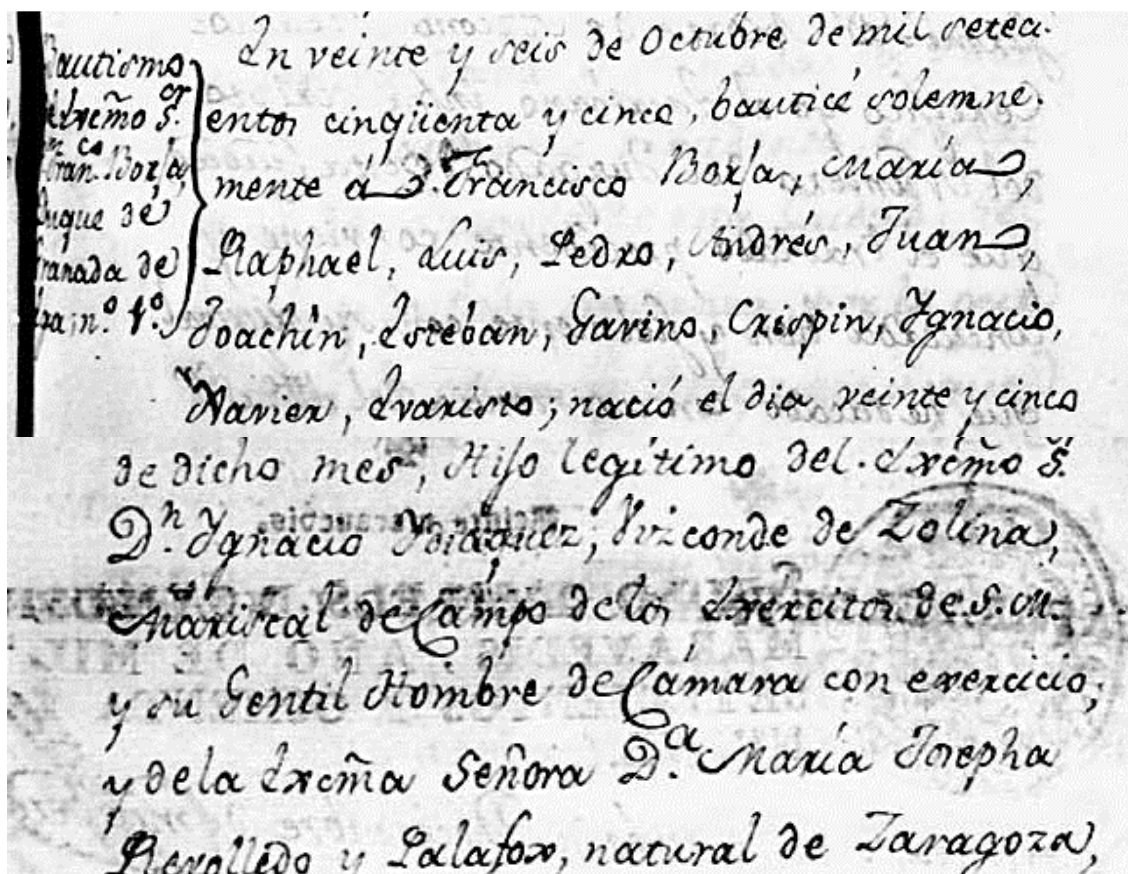 Bautismo
del Excmõ S.or
Fran.co Borja,
Duque de
Granada de
Ega; n.º 1.º
En veinte y seis de Octubre de mil setec.
entos cinqüenta y cinco, bauticé solemne.
mente á D. Francisco Borja, María,
Raphael, Luis, Pedro, Andrés, Juan,
Joachin, Estéban, Gavino, Crispin, Ygnacio,
Xavier, Evaristo; nació el dia veinte y cinco
de dicho més, Hijo legítimo del Excmõ S.or
D.n Ygnacio Ydiaquez, Vizconde de Zolina,
Mariscal de Campo de los Exercitos de S. M.
y su Gentil Hombre de Cámara con exercicio,
y de la Excmã Señora D.a María Josepha
Revolledo y Palafox, natural de Zaragoza,